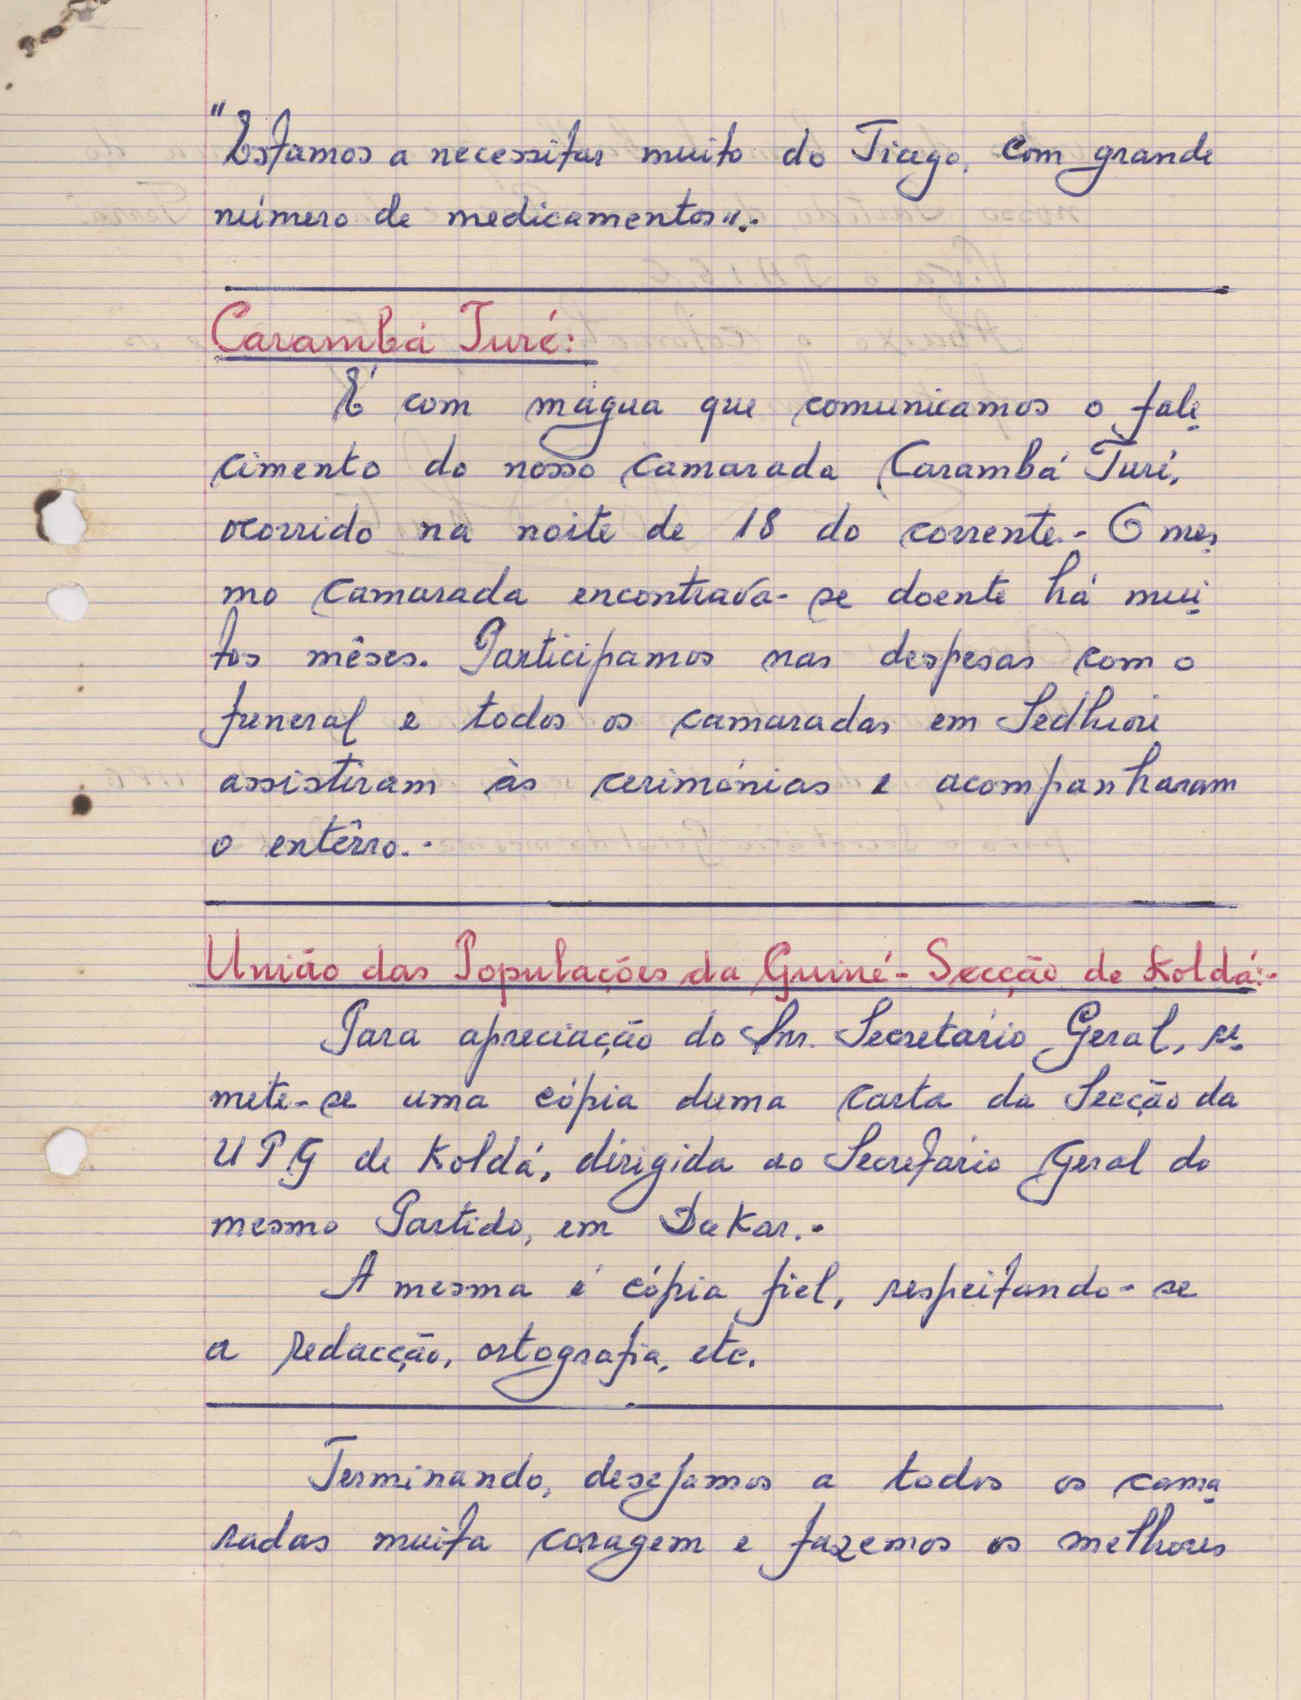 "Estamos a necessitar muito do Tiago, com grande
número de medicamentos".-
Carambá Turé:
É com mágua que comunicamos o fale
cimento do nosso camarada Carambá Turé,
ocorrido na noite de 18 do corrente.- O mes
mo camarada encontrava-se doente há mui
tos mêses. Participamos nas despesas com o
funeral e todos os camaradas em Sedhiou
assistiram às cerimónias e acompanharam
o entêrro.-
União das Populações da Guiné - Secção de Koldá:-
Para apreciação do Snr. Secretário Geral, re
mete-se uma cópia duma carta da Secção da
UPG de Koldá, dirigida ao Secretário Geral do
mesmo Partido, em Dakar.-
A mesma é cópia fiel, respeitando-se
a redacção, ortografia, etc.
Terminando, desejamos a todos os cama
radas muita coragem e fazemos os melhores